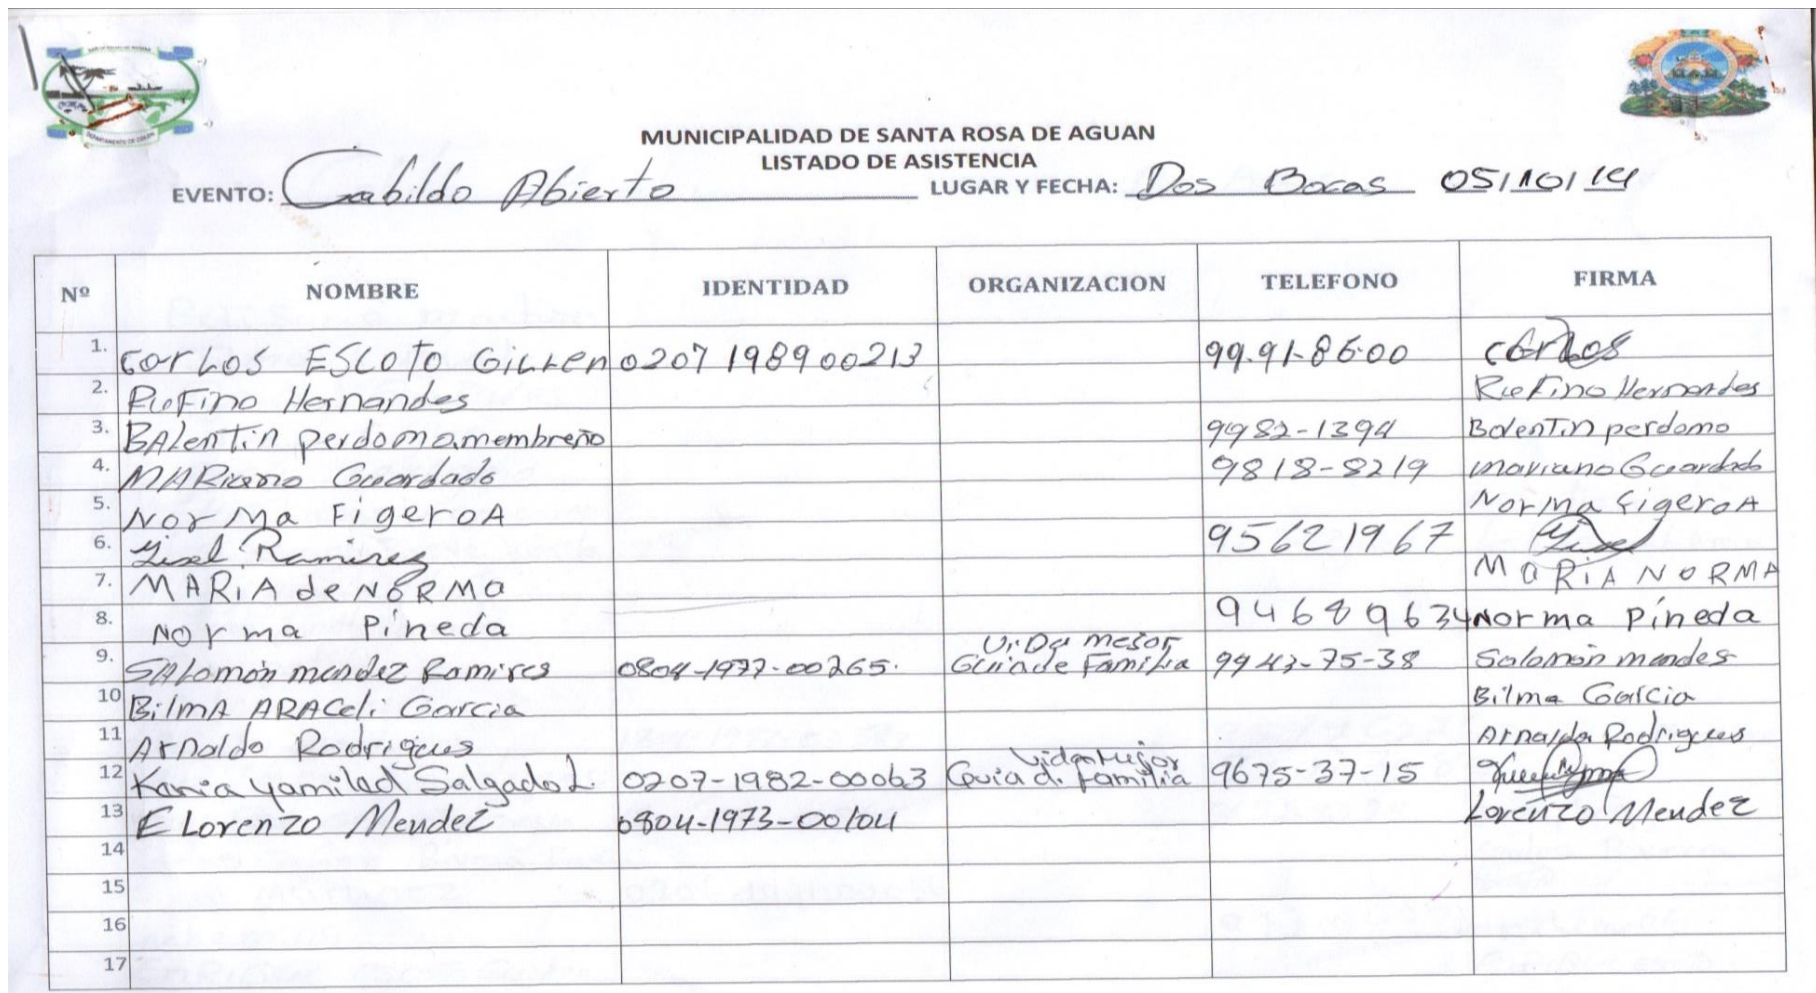 MUNICIPALIDAD DE SANTA ROSA DE AGUAN
LISTADO DE ASISTENCIA
EVENTO: Cabildo Abierto LUGAR Y FECHA: Dos Bocas 05/10/14
Nº NOMBRE IDENTIDAD ORGANIZACION TELEFONO FIRMA
1. CarLOS ESCOTO GiLLen 0207 1989 00213 99.91-86-00 Carlos
2. RuFino Hernandes RuFino Hernandes
3. BALenTin perdomo membreño 9982-1394 BalenTin perdomo
4. MARiano Guardado 9818-8219 mariano Guardado
5. NorMa FigeroA NorMa FigeroA
6. Gisel Ramirez 95621967 Gisel
7. MARiA de NORMa MaRiA NORMA
8. Norma Pineda 94689634 Norma Pineda
9. SALomón mendez Ramires 0804-1977-00265. ViDa mejor Guia de Familia 9943-75-38 Salomón mendes
10 BilmA ARACeli Garcia Bilma Garcia
11 Arnaldo Rodrigues Arnaldo Rodrigues
12 Yamiled Salgado L. 0207-1982-00063 Vida Mejor Guia d. familia 9675-37-15
13 E Lorenzo Mendez 0804-1973-00104 Lorenzo Mendez
14
15
16
17